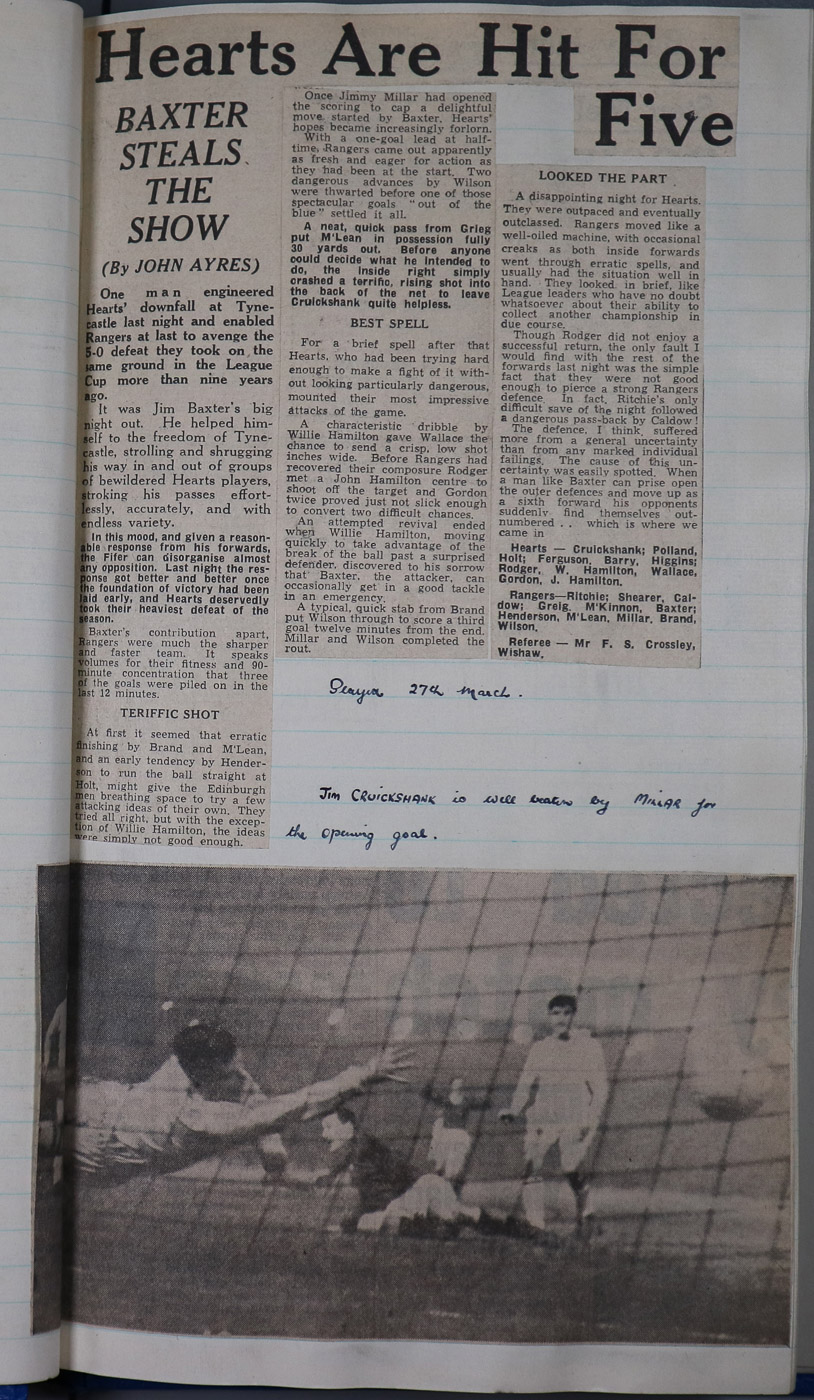 Hearts Are Hit For
Five
BAXTER
STEALS
THE
SHOW
(By JOHN AYRES)
One man engineered
Hearts' downfall at Tyne-
castle last night and enabled
Rangers at last to avenge the
5-0 defeat they took on the
same ground in the League
Cup more than nine years
ago.
It was Jim Baxter's big
night out. He helped him-
self to the freedom of Tyne-
castle, strolling and shrugging
his way in and out of groups
of bewildered Hearts players,
stroking his passes effort-
lessly, accurately, and with
endless variety.
In this mood, and given a reason-
able response from his forwards,
the Fifer can disorganise almost
any opposition. Last night the res-
ponse got better and better once
the foundation of victory had been
laid early, and Hearts deservedly
took their heaviest defeat of the
season.
Baxter's contribution apart,
Rangers were much the sharper
and faster team. It speaks
volumes for their fitness and 90-
minute concentration that three
of the goals were piled on in the
last 12 minutes.
TERIFFIC SHOT
At first it seemed that erratic
finishing by Brand and M'Lean,
and an early tendency by Hender-
son to run the ball straight at
Holt, might give the Edinburgh
men breathing space to try a few
attacking ideas of their own. They
tried all right, but with the excep-
tion of Willie Hamilton, the ideas
were simply not good enough.
Once Jimmy Millar had opened
the scoring to cap a delightful
move started by Baxter, Hearts'
hopes became increasingly forlorn.
With a one-goal lead at half-
time, Rangers came out apparently
as fresh and eager for action as
they had been at the start. Two
dangerous advances by Wilson
were thwarted before one of those
spectacular goals "out of the
blue" settled it all.
A neat, quick pass from Grieg
put M'Lean in possession fully
30 yards out. Before anyone
could decide what he intended to
do, the inside right simply
crashed a terrific, rising shot into
the back of the net to leave
Cruickshank quite helpless.
BEST SPELL
For a brief spell after that
Hearts, who had been trying hard
enough to make a fight of it with-
out looking particularly dangerous,
mounted their most impressive
attacks of the game.
A characteristic dribble by
Willie Hamilton gave Wallace the
chance to send a crisp, low shot
inches wide. Before Rangers had
recovered their composure Rodger
met a John Hamilton centre to
shoot off the target and Gordon
twice proved just not slick enough
to convert two difficult chances.
An attempted revival ended
when Willie Hamilton, moving
quickly to take advantage of the
break of the ball past a surprised
defender, discovered to his sorrow
that Baxter, the attacker, can
occasionally get in a good tackle
in an emergency.
A typical, quick stab from Brand
put Wilson through to score a third
goal twelve minutes from the end.
Millar and Wilson completed the
rout.
LOOKED THE PART
A disappointing night for Hearts.
They were outpaced and eventually
outclassed. Rangers moved like a
well-oiled machine, with occasional
creaks as both inside forwards
went through erratic spells, and
usually had the situation well in
hand. They looked, in brief, like
League leaders who have no doubt
whatsoever about their ability to
collect another championship in
due course.
Though Rodger did not enjoy a
successful return, the only fault I
would find with the rest of the
forwards last night was the simple
fact that they were not good
enough to pierce a strong Rangers
defence. In fact, Ritchie's only
difficult save of the night followed
a dangerous pass-back by Caldow!
The defence, I think, suffered
more from a general uncertainty
than from any marked individual
failings. The cause of this un-
certainty was easily spotted. When
a man like Baxter can prise open
the outer defences and move up as
a sixth forward his opponents
suddenly find themselves out-
numbered . . which is where we
came in
Hearts — Cruickshank; Polland,
Holt; Ferguson, Barry, Higgins;
Rodger, W. Hamilton, Wallace,
Gordon, J. Hamilton.
Rangers—Ritchie; Shearer, Cal-
dow; Greig, M'Kinnon, Baxter;
Henderson, M'Lean, Millar, Brand,
Wilson.
Referee — Mr F. S. Crossley,
Wishaw.
Played 27th March.
Jim CRUICKSHANK is well beaten by MILLAR for
the opening goal.